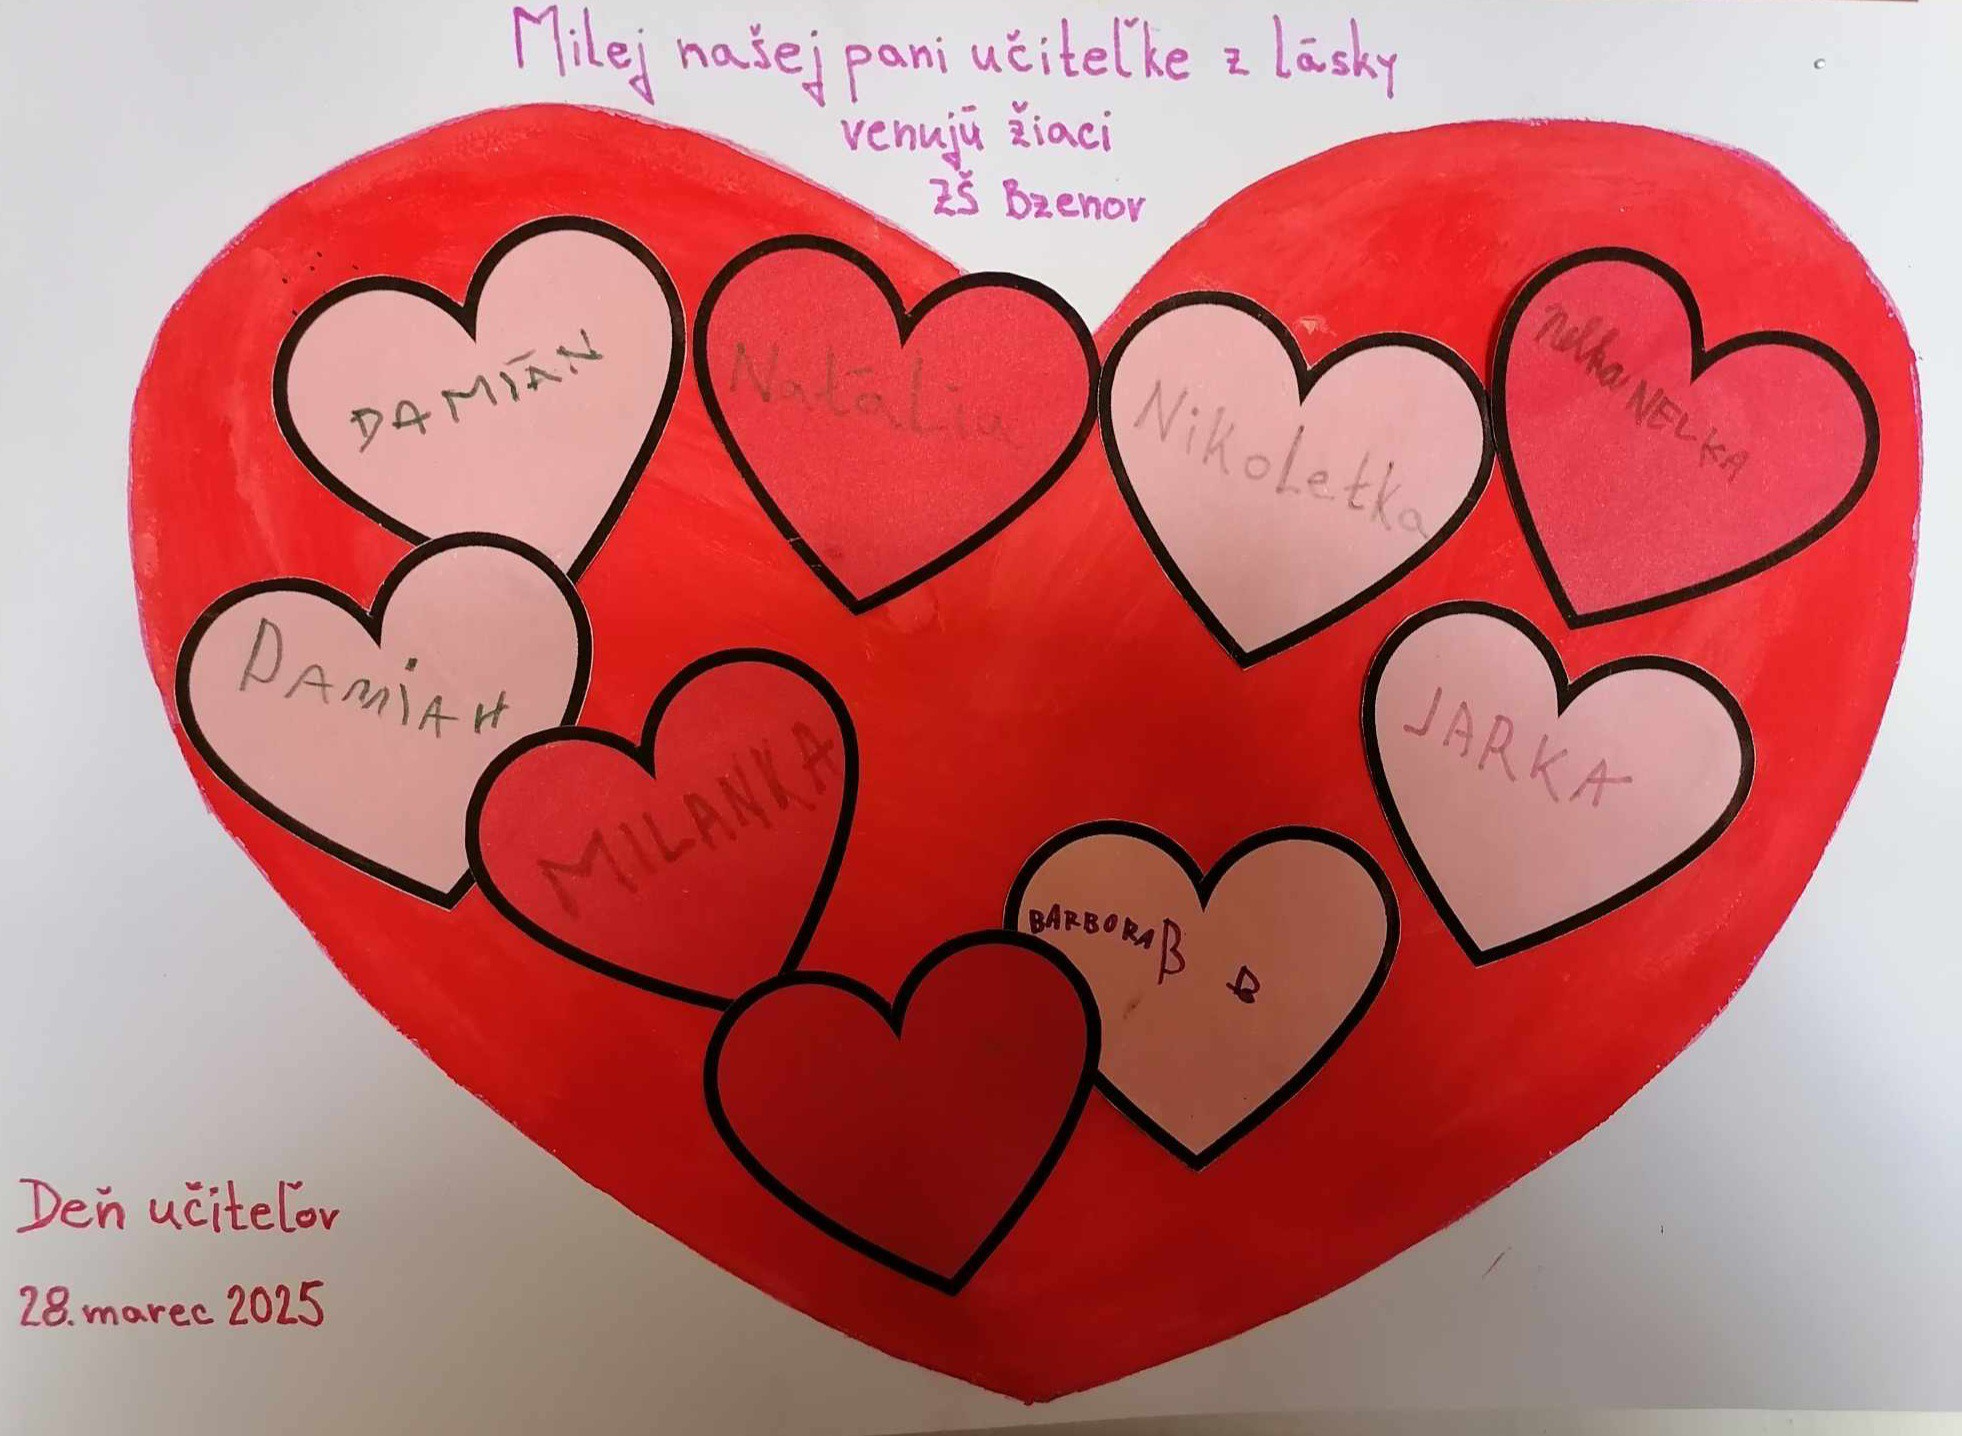 Milej našej pani učiteľke z lásky
venujú žiaci
ZŠ Bzenov
DAMIÁN
Natália
Nikoletka
Nelka NELKA
DAMIAH
MILANKA
JARKA
BARBORA B B
Deň učiteľov
28. marec 2025